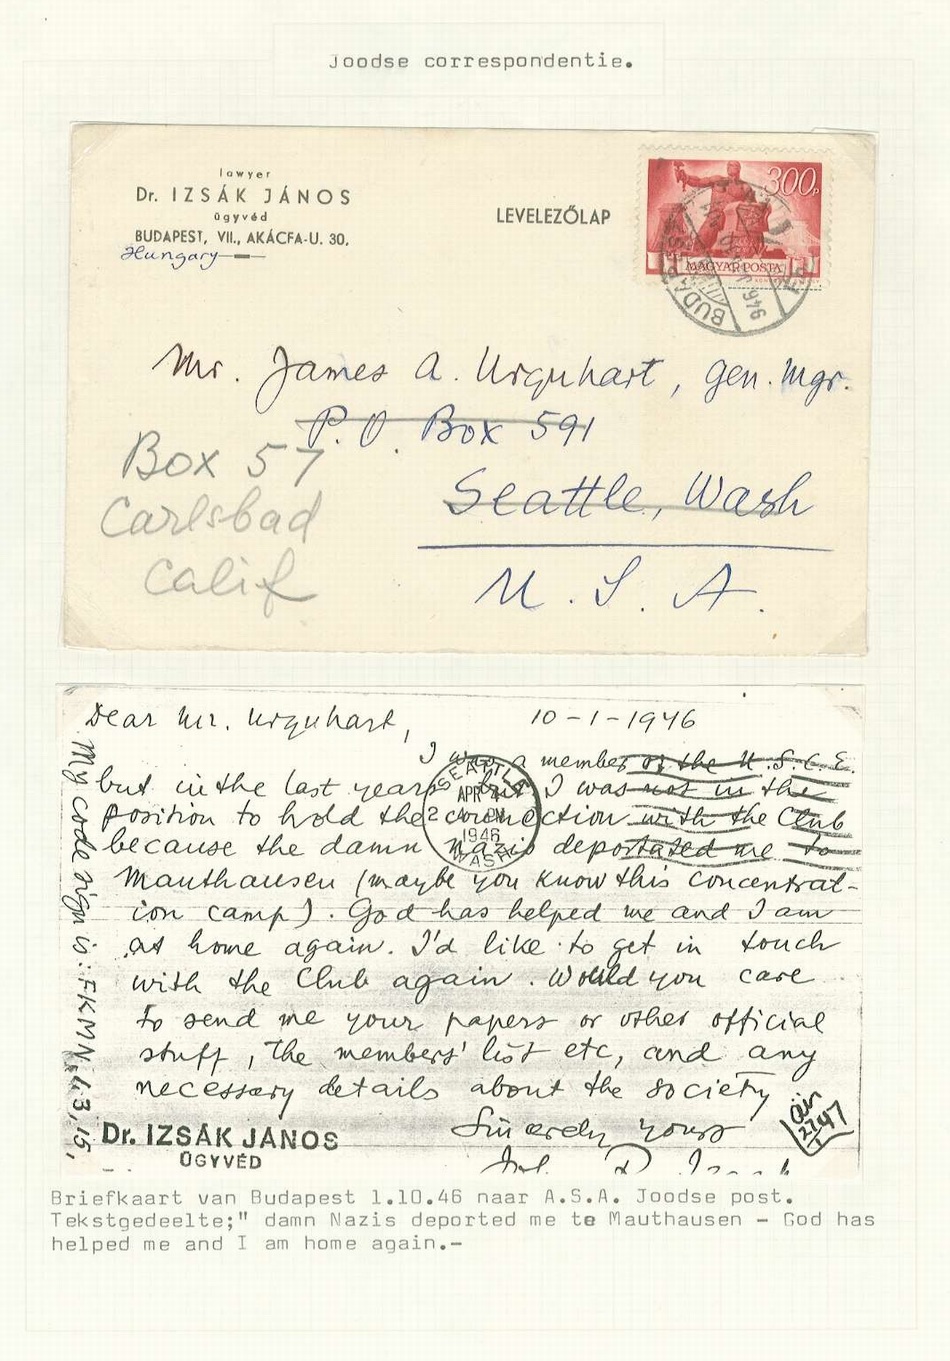 Joodse correspondentie.
lawyer
Dr. IZSÁK JÁNOS
ügyvéd
BUDAPEST, VII., AKÁCFA-U. 30.
Hungary
LEVELEZŐLAP
300p
MAGYAR POSTA
BUDAPEST
946
Mr. James A. Urquhart, gen. mgr.
P. O. Box 591
Seattle, Wash
U. S. A.
Box 57
Carlsbad
Calif
Dear Mr. Urquhart,
10-1-1946
I was a member of the U.S.C.E.
but in the last years but I was not in the
position to hold the connection with the Club
because the damn Nazis deportated me to
Mauthausen (maybe you know this concentrat-
ion camp). God has helped me and I am
at home again. I'd like to get in touch
with the Club again. Would you care
to send me your papers or other official
stuff, the members' list etc, and any
necessary details about the society
Sincerely yours
SEATTLE
APR 4
1946
WASH
My code sign is: FKMN
Dr. IZSÁK JÁNOS
ÜGYVÉD
air
2747
Briefkaart van Budapest 1.10.46 naar A.S.A. Joodse post.
Tekstgedeelte;" damn Nazis deported me to Mauthausen - God has
helped me and I am home again.-